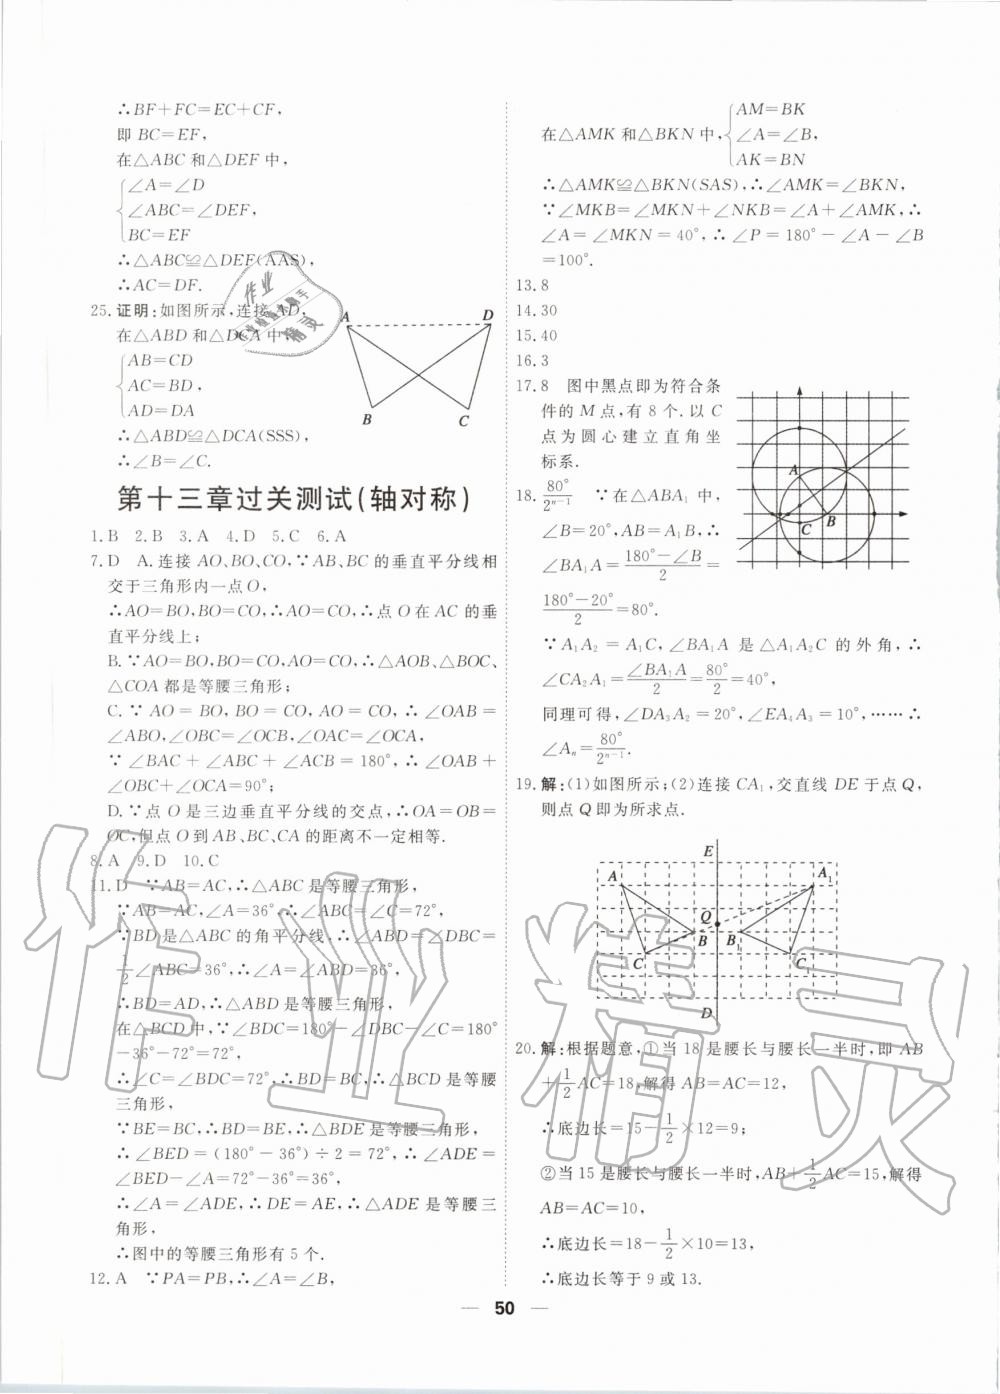 ∴BF+FC=EC+CF,
即 BC=EF,
在△ABC 和△DEF 中,
∠A=∠D
∠ABC=∠DEF,
BC=EF
∴△ABC≌△DEF(AAS),
∴AC=DF.
25.证明:如图所示,连接 AD,
在△ABD 和△DCA 中
AB=CD
AC=BD,
AD=DA
∴△ABD≌△DCA(SSS),
∴∠B=∠C.
A D
B C
第十三章过关测试(轴对称)
1.B 2.B 3.A 4.D 5.C 6.A
7.D A.连接 AO,BO,CO,∵AB,BC 的垂直平分线相
交于三角形内一点 O,
∴AO=BO,BO=CO,∴AO=CO,∴点 O 在 AC 的垂
直平分线上;
B.∵AO=BO,BO=CO,AO=CO,∴△AOB、△BOC、
△COA 都是等腰三角形;
C.∵ AO= BO, BO = CO, AO = CO, ∴ ∠OAB =
∠ABO,∠OBC=∠OCB,∠OAC=∠OCA,
∵ ∠BAC + ∠ABC + ∠ACB = 180°, ∴ ∠OAB +
∠OBC+∠OCA=90°;
D.∵点 O 是三边垂直平分线的交点,∴OA=OB=
OC,但点 O 到 AB、BC、CA 的距离不一定相等.
8.A 9.D 10.C
11.D ∵AB=AC,∴△ABC 是等腰三角形,
∵AB=AC,∠A=36°,∴∠ABC=∠C=72°,
∵BD是△ABC 的角平分线,∴∠ABD=∠DBC=
1/2∠ABC=36°,∴∠A=∠ABD=36°,
∴BD=AD,∴△ABD 是等腰三角形,
在△BCD 中,∵∠BDC=180°-∠DBC-∠C=180°
-36°-72°=72°,
∴∠C=∠BDC=72°,∴BD=BC,∴△BCD 是等腰
三角形,
∵BE=BC,∴BD=BE,∴△BDE 是等腰三角形,
∴∠BED=(180°-36°)÷2=72°,∴∠ADE=
∠BED-∠A=72°-36°=36°,
∴∠A=∠ADE,∴DE=AE,∴△ADE 是等腰三
角形,
∴图中的等腰三角形有 5 个.
12.A ∵PA=PB,∴∠A=∠B,
AM=BK
在△AMK 和△BKN 中, ∠A=∠B,
AK=BN
∴△AMK≌△BKN(SAS),∴∠AMK=∠BKN,
∵∠MKB=∠MKN+∠NKB=∠A+∠AMK,∴
∠A=∠MKN=40°,∴∠P=180°-∠A-∠B
=100°.
13.8
14.30
15.40
16.3
17.8 图中黑点即为符合条
件的 M 点,有 8 个.以 C
点为圆心建立直角坐
标系.
A
C B
18. 80°/2ⁿ⁻¹ ∵在△ABA₁ 中,
∠B=20°,AB=A₁B,∴
∠BA₁A= (180°-∠B)/2 =
(180°-20°)/2 =80°.
∵A₁A₂=A₁C,∠BA₁A 是△A₁A₂C 的外角,∴
∠CA₂A₁= ∠BA₁A/2 = 80°/2 =40°,
同理可得,∠DA₃A₂=20°,∠EA₄A₃=10°,……∴
∠Aₙ= 80°/2ⁿ⁻¹.
19.解:(1)如图所示;(2)连接 CA₁,交直线 DE 于点 Q,
则点 Q 即为所求点.
E
A A₁
Q
B B₁
C C₁
D
20.解:根据题意,①当 18 是腰长与腰长一半时,即 AB
+1/2AC=18,解得 AB=AC=12,
∴底边长=15-1/2×12=9;
②当 15 是腰长与腰长一半时,AB+1/2AC=15,解得
AB=AC=10,
∴底边长=18-1/2×10=13,
∴底边长等于 9 或 13.
50
作业精灵